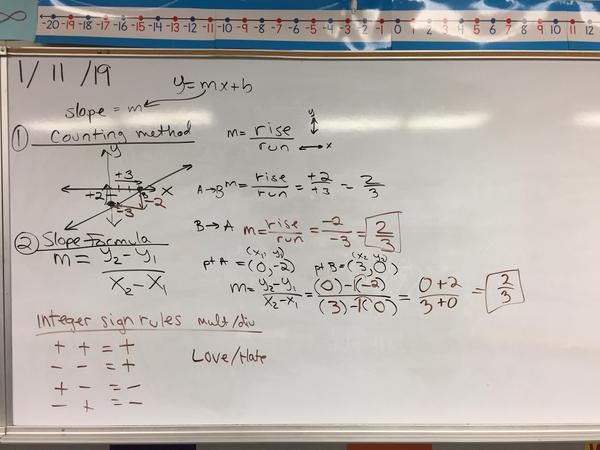 ∞ -20 -19 -18 -17 -16 -15 -14 -13 -12 -11 -10 -9 -8 -7 -6 -5 -4 -3 -2 -1 0 1 2 3 4 5 6 7 8 9 10 11 12
1/11/19
y=mx+b
slope = m
① Counting method
m = rise/run
y
x
y
+3
+2
x
B
-2
-3
A→B m = rise/run = +2/+3 = 2/3
B→A m = rise/run = -2/-3 = 2/3
② Slope Formula
m = y₂-y₁/x₂-x₁
(x₁ y₁) (x₂ y₂)
pt A = (0,-2) pt B = (3,0)
m = y₂-y₁/x₂-x₁ = (0)-1(-2)/(3)-1(0) = 0+2/3+0 = 2/3
Integer sign rules mult/div
+ + = +
- - = +
+ - = -
- + = -
Love/Hate